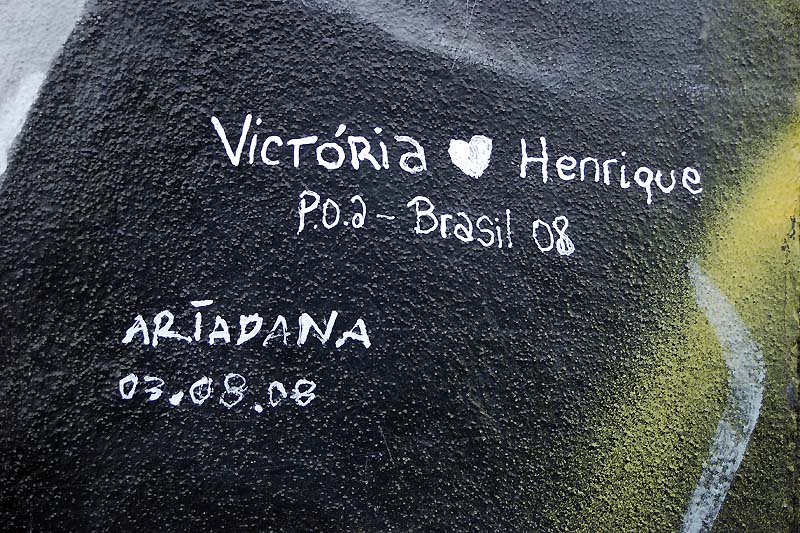 Victória ♥ Henrique
P.O.a - Brasil 08
ARTADANA
03.08.08